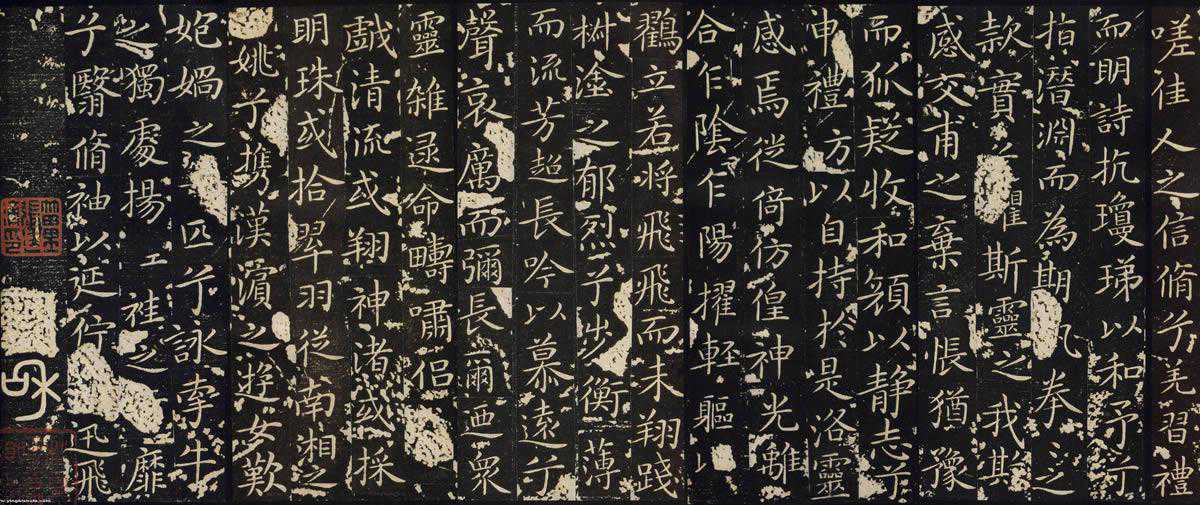 嗟佳人之信脩兮羌習禮
而明詩抗瓊珶以和予兮
指潛淵而為期執拳之
款實兮懼斯靈之我欺
感交甫之棄言悵猶豫
而狐疑收和顏以静志兮
申禮方以自持於是洛靈
感焉徙倚彷徨神光離
合乍陰乍陽擢軽軀以
鶴立若將飛飛而未翔踐
椒塗之郁烈兮步衡薄
而流芳超長吟以慕遠兮
聲哀厲而彌長爾迺衆
靈雜遝命疇嘯侣
戲清流或翔神渚或採
明珠或拾翠羽從南湘之
姚兮攜漢濱之遊女歎
媧之匹兮詠牽牛
之獨處揚袿之靡
兮翳脩袖以延佇迅飛